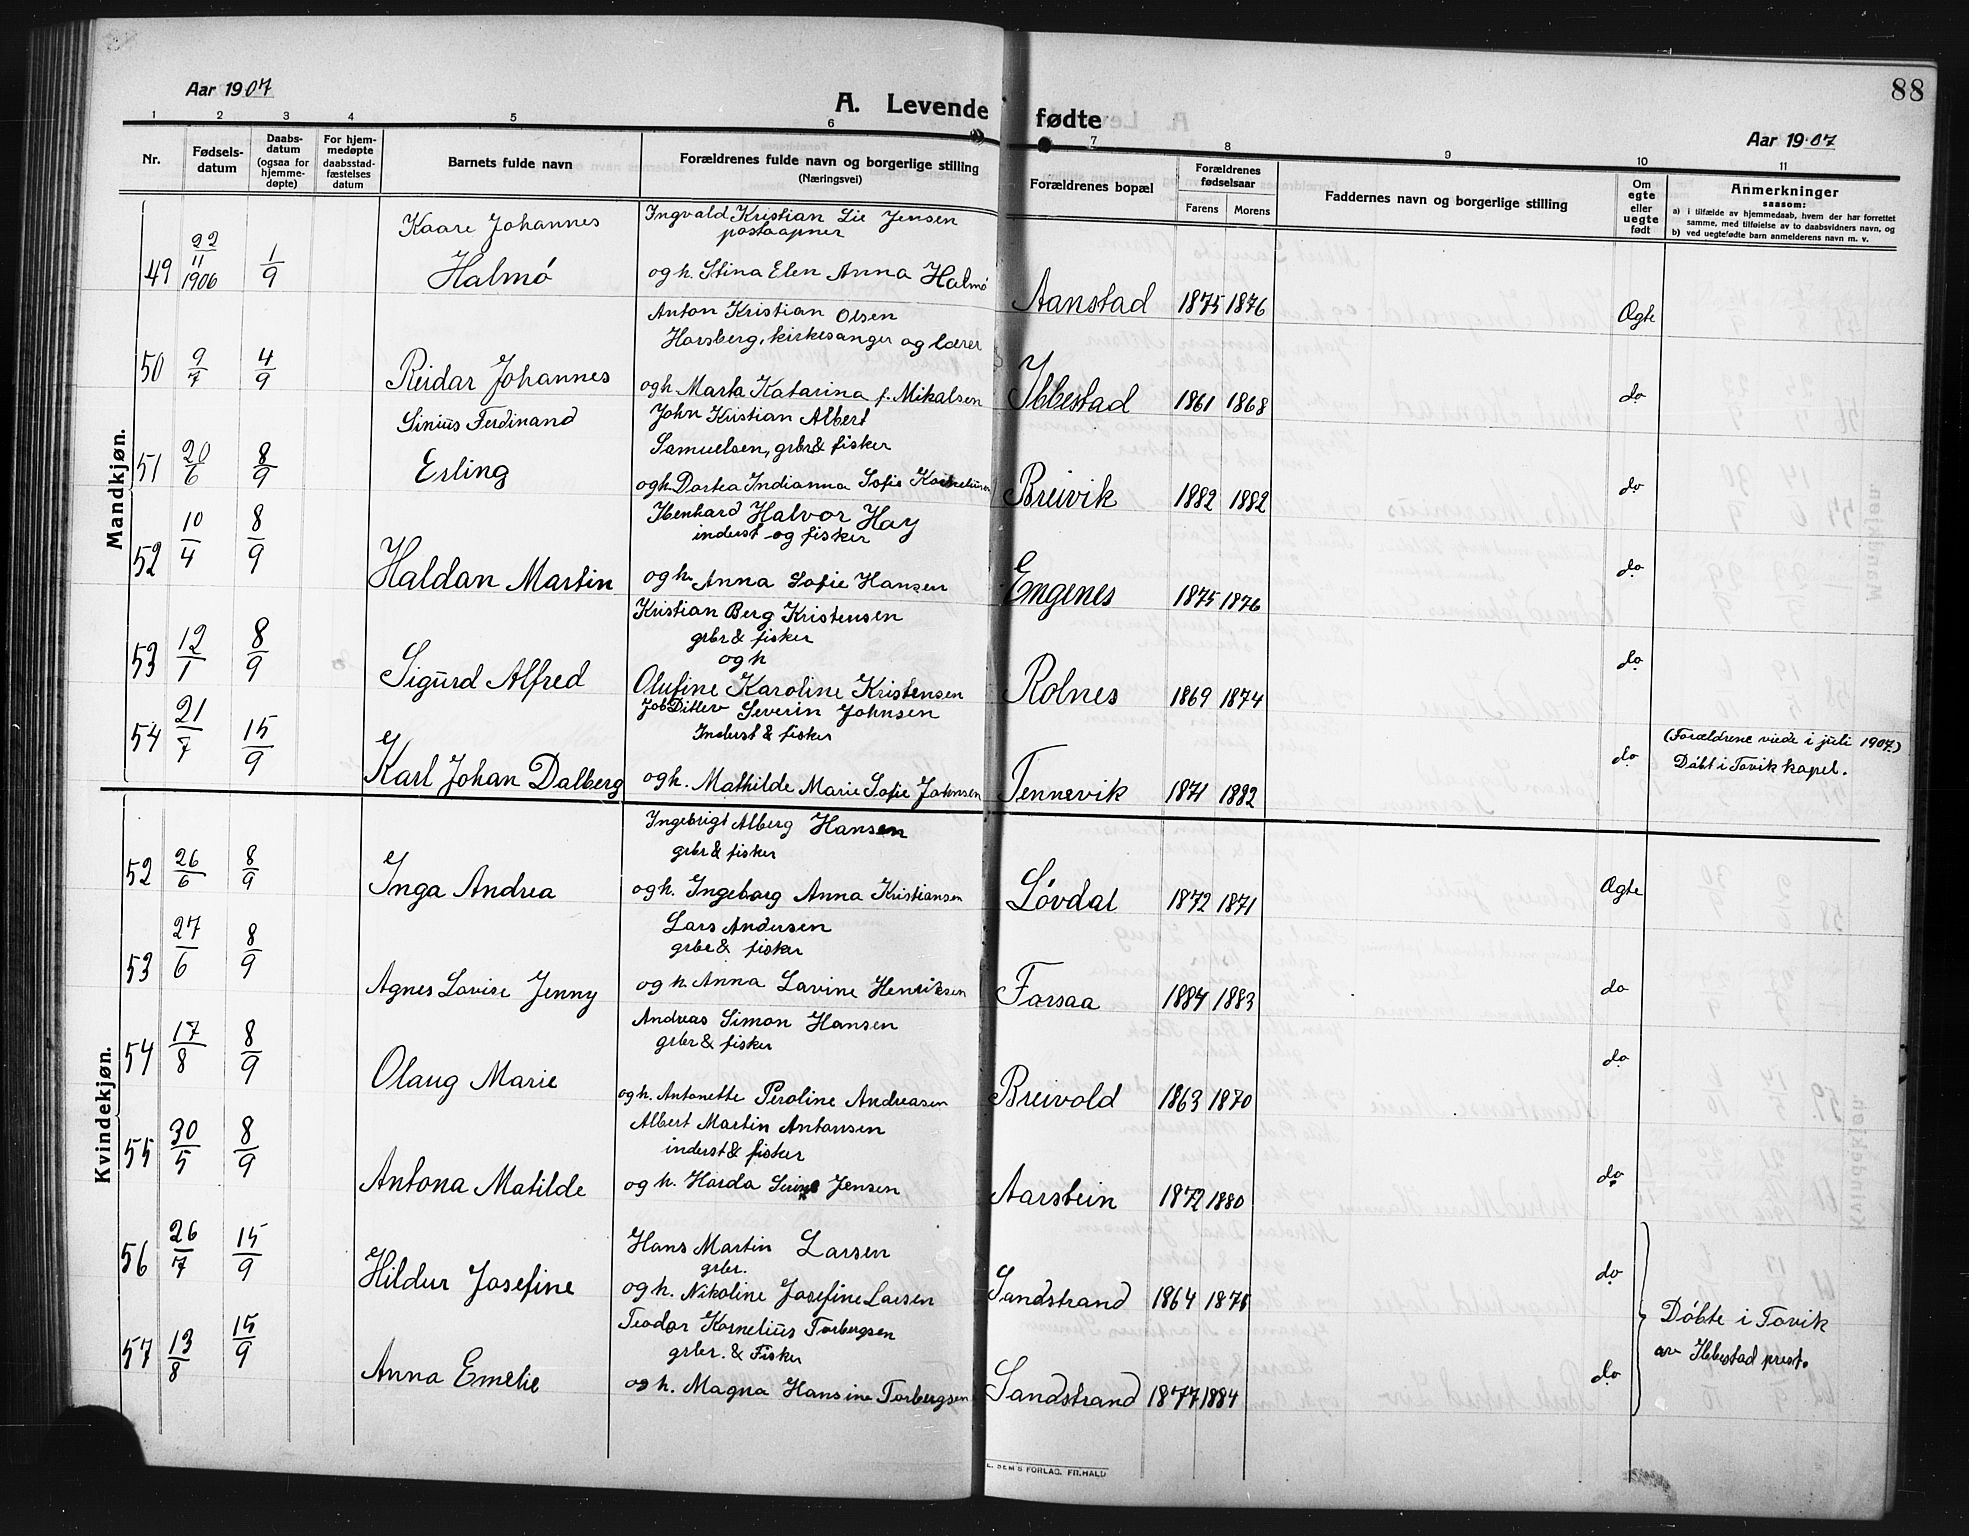 88
Aar 1907
A. Levende fødte
Aar 1907
1 2 3 4 5 6 7 8 9 10 11
Nr.
Fødsels-
datum
Daabs-
datum
(ogsaa for
hjemme-
døpte)
For hjem-
medøpte
daabsstad-
fæstelses
datum
Barnets fulde navn
Forældrenes fulde navn og borgerlige stilling
(Næringsvei)
Forældrenes bopæl
Forældrenes
fødselsaar
Farens Morens
Faddernes navn og borgerlige stilling
Om
egte
eller
uegte
født
Anmerkninger
saasom:
a) i tilfælde av hjemmedaab, hvem der har forrettet
samme, med tilføielse av to daabsvidners navn, og
b) ved uegtefødte barn anmelderens navn m. v.
Mandkjøn.
Kaare Johannes Ingvald Kristian Lie Jensen
postaapner
49 22/11 1906 1/9 Halmø og h. Stina Elen Anna Halmø Aanstad 1875 1876 Ogte
Anton Kristian Olsen
Horsberg, kirkesanger og lærer
50 9/7 4/9 Reidar Johannes og h. Marta Katarina f. Mikalsen Ibbestad 1861 1868 do
Sinius Ferdinand John Kristian Albert
Samuelsen, grbr & fisker
51 20/6 8/9 Erling og h. Dortea Indianna Sofie Breivik 1882 1882 do
Ibenhard Halvor Hay
inderst og fisker
52 10/4 8/9 Haldan Martin og h. Anna Sofie Hansen Engenes 1875 1876 do
Kristian Berg Kristensen
grbr & fisker
og h
53 12/1 8/9 Sigurd Alfred Olufine Karoline Kristensen Rolnes 1869 1874 do
Job Ditlev Severin Johnsen
Inderst & fisker
54 21/7 15/9 Karl Johan Dalberg og h. Mathilde Marie Sofie Johnsen Tennevik 1871 1882 do
(Forældrene viede i juli 1907.)
Døbt i Tovik kapel.
Kvindekjøn.
Ingebrigt Alberg Hansen
grbr & fisker
52 26/6 8/9 Inga Andrea og h. Ingeborg Anna Kristiansen Løvdal 1872 1871 Ogte
Lars Andersen
grbr & fisker
53 27/6 8/9 Agnes Lovise Jenny og h. Anna Lavine Henriksen Forsaa 1884 1883 do
Andreas Simon Hansen
grbr & fisker
54 17/8 8/9 Olaug Marie og h. Antonette Peroline Andreasen Breivold 1863 1870 do
Albert Martin Antonsen
inderst & fisker
55 30/5 8/9 Antona Matilde og h. Harda Jensen Aarstein 1872 1880 do
Hans Martin Larsen
grbr.
56 26/7 15/9 Hildur Josefine og h. Nikoline Josefine Larsen Sandstrand 1864 do
Teodor Kornelius Torbergsen
grbr. & Fisker
57 13/8 15/9 Anna Emelie og h. Magna Hansine Torbergsen Sandstrand 1877 1884 do
Døbte i Tovik
av Ibbestad prest.
SEM'S FORLAG. FR.HALD